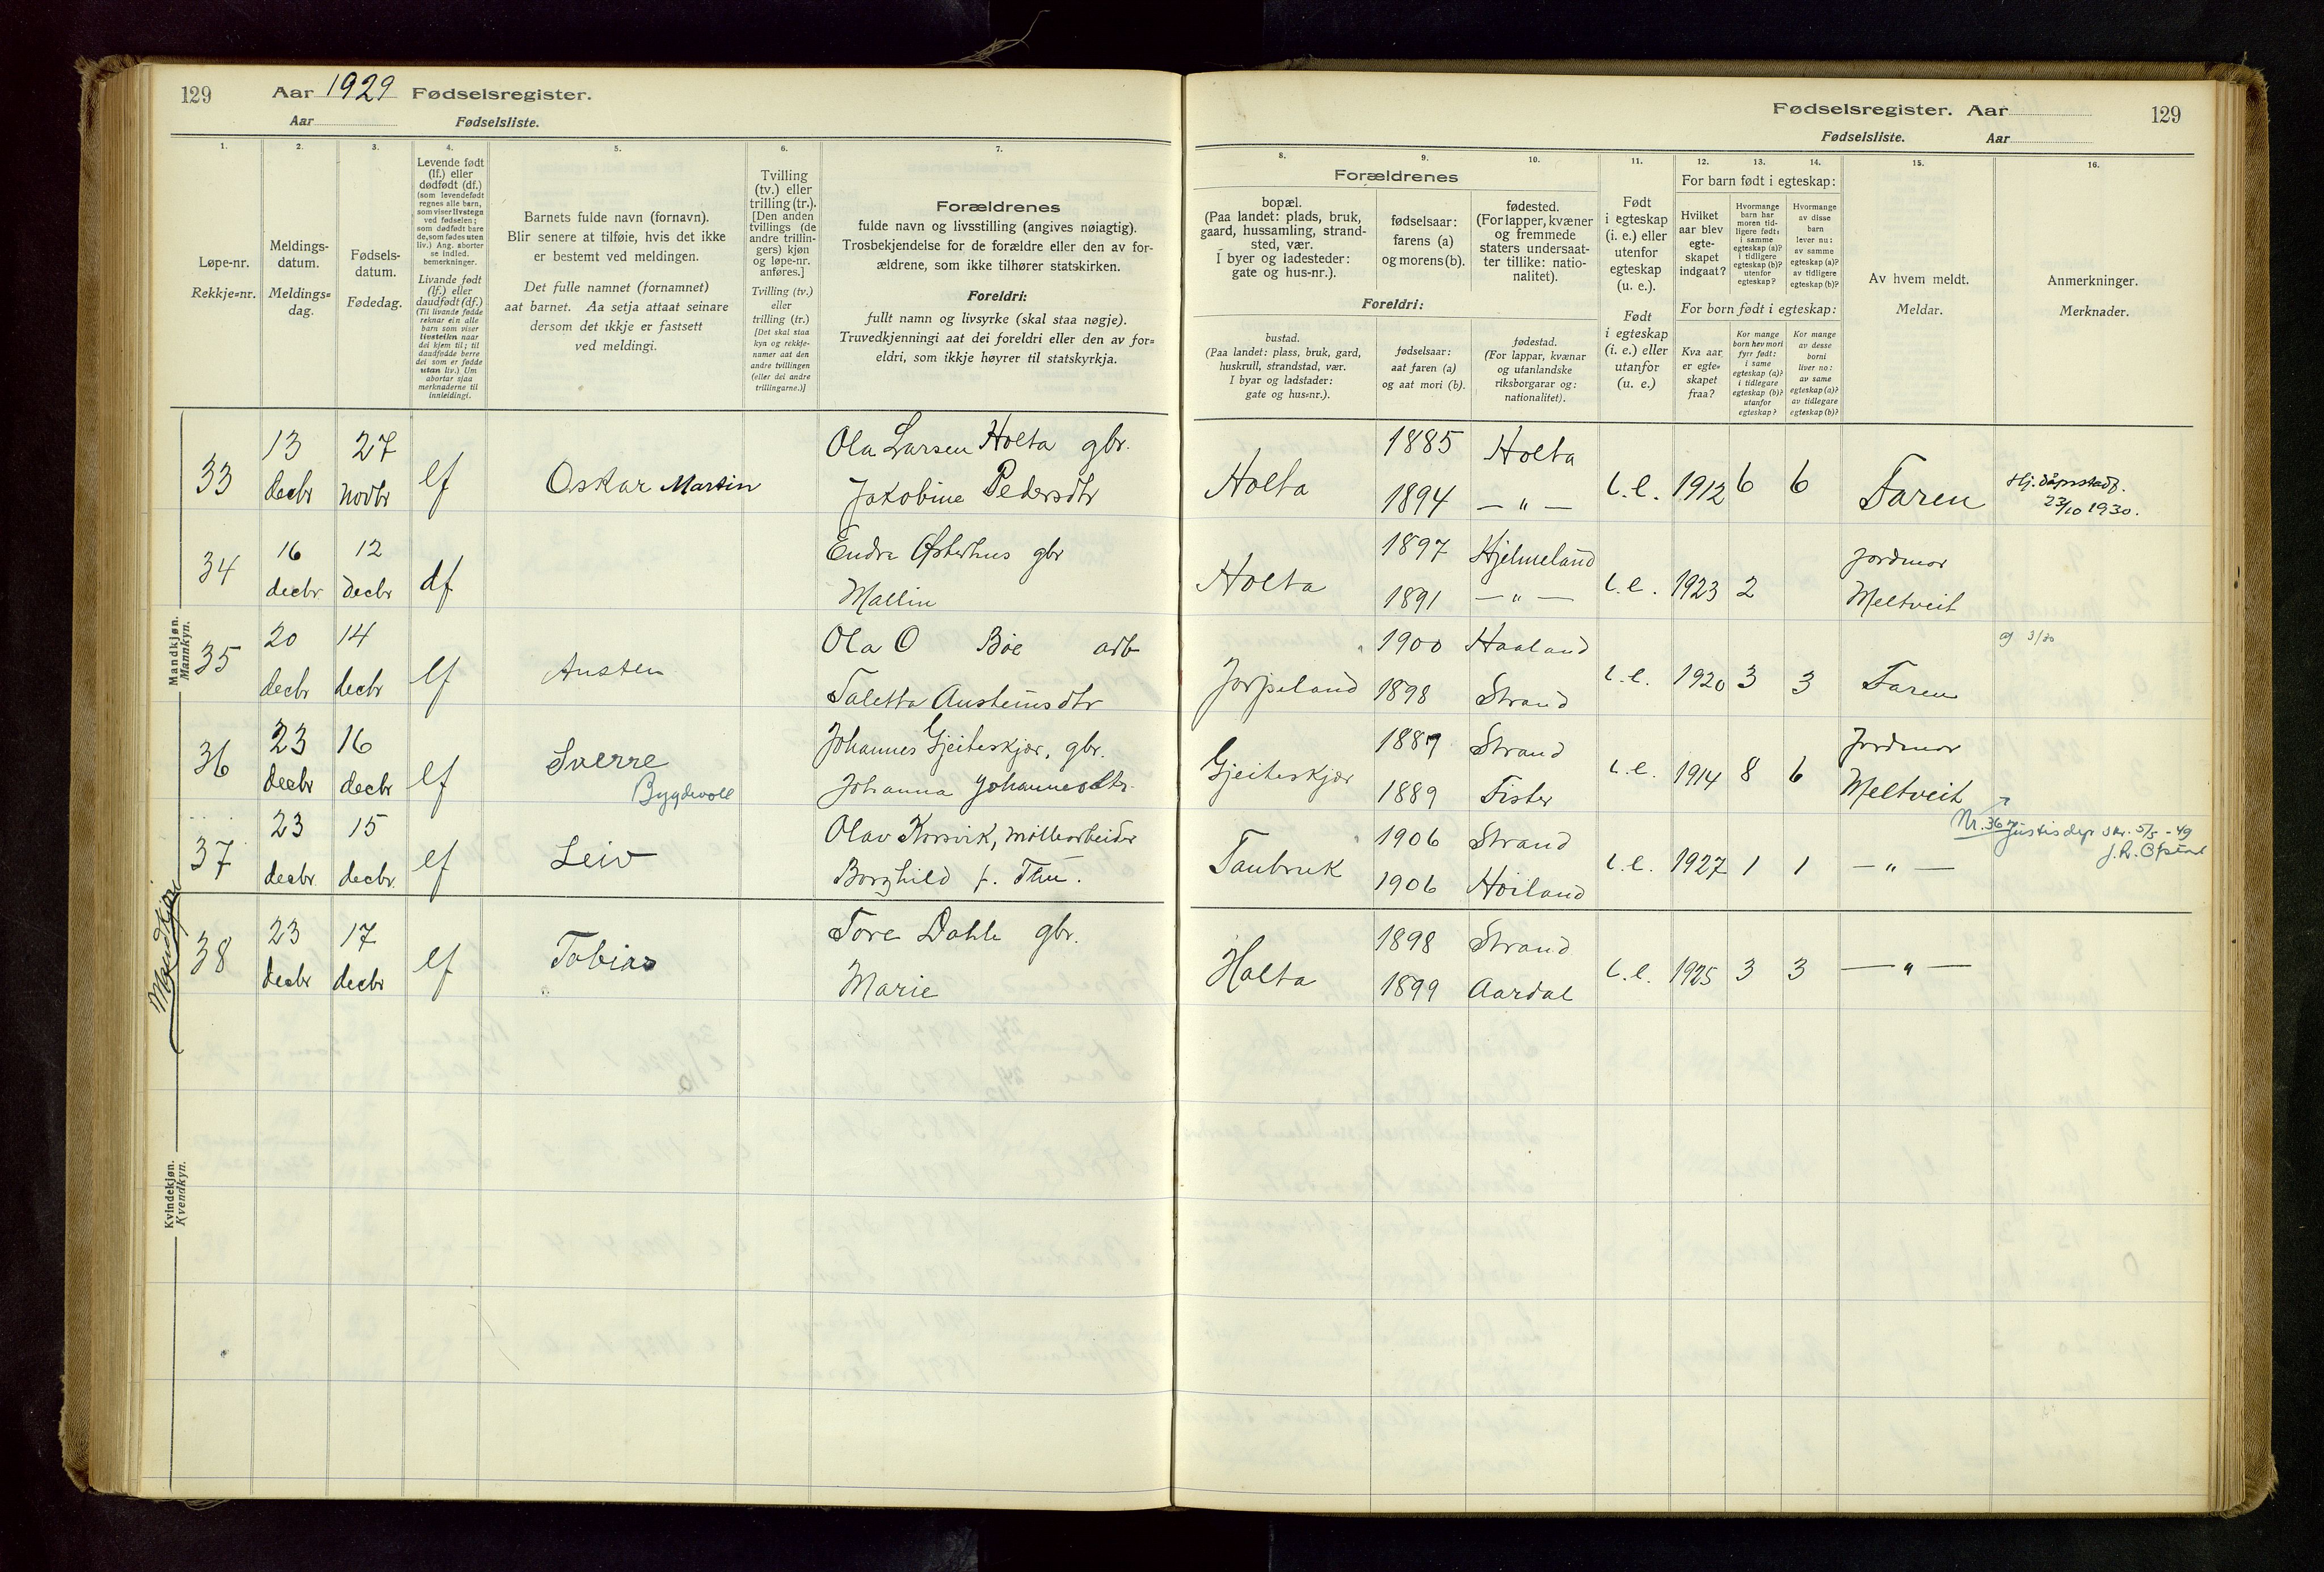 129 Aar 1929 Fødselsregister.
Aar Fødselsliste.
Fødselsregister. Aar 129
Fødselsliste. Aar
1. 2. 3. 4. 5. 6. 7. 8. 9. 10. 11. 12. 13. 14. 15. 16.
Løpe-nr.
Rekkje=nr.
Meldings-
datum.
Meldings=
dag.
Fødsels-
datum.
Fødedag.
Levende født
(lf.) eller
dødfødt (df.)
(som levendefødt
regnes alle barn,
som viser livstegn
ved fødselen;
som dødfødt bare
de, som fødes uten
liv.) Ang. aborter
se indled.
bemerkninger.
Livande født
(lf.) eller
daudfødt (df.)
(Til livande fødde
reknar ein alle
barn som viser
livsteikn naar
dei kjem til; til
daudfødde berre
dei som er fødde
utan liv.) Um
abortar sjaa
merknaderne til
innleidingi.
Barnets fulde navn (fornavn).
Blir senere at tilføie, hvis det ikke
er bestemt ved meldingen.
Det fulle namnet (fornamnet)
aat barnet. Aa setja attaat seinare
dersom det ikkje er fastsett
ved meldingi.
Tvilling
(tv.) eller
trilling (tr.).
[Den anden
tvillings (de
andre trillin-
gers) kjøn
og løpe-nr.
anføres.]
Tvilling (tv.)
eller
trilling (tr.)
[Det skal staa
kyn og rekkje-
namer aat den
andre tvillingen
(eller dei andre
trillingarne.)]
Forældrenes
fulde navn og livsstilling (angives nøiagtig).
Trosbekjendelse for de forældre eller den av for-
ældrene, som ikke tilhører statskirken.
Foreldri:
fullt namn og livsyrke (skal staa nøgje).
Truvedkjenningi aat dei foreldri eller den av for=
eldri, som ikkje høyrer til statskyrkja.
Forældrenes
bopæl.
(Paa landet: plads, bruk,
gaard, hussamling, strand-
sted, vær.
I byer og ladesteder:
gate og hus-nr.).
fødselsaar:
farens (a)
og morens (b).
fødested.
(For lapper, kvæner
og fremmede
staters undersaat-
ter tillike: natio-
nalitet).
Foreldri:
bustad.
(Paa landet: plass, bruk, gard,
huskrull, strandstad, vær.
I byar og ladstader:
gate og hus=nr.).
fødselsaar:
aat faren (a)
og aat mori (b).
fødestad.
(For lappar, kvænar
og utanlandske
riksborgarar og:
nationalitet).
Født
i egteskap
(i. e.) eller
utenfor
egteskap
(u. e.).
Født
i egteskap
(i. e.) eller
utanfor
(u. e.)
For barn født i egteskap:
Hvilket
aar blev
egte-
skapet
indgaat?
Hvormange
barn har
moren tid-
ligere født:
i samme
egteskap (a)?
i tidligere
egteskap (b)?
utenfor
egteskap?
Hvormange
av disse
barn
lever nu:
av samme
egteskap (a)?
av tidligere
egteskap (b)?
For born født i egteskap:
Kva aar
er egte=
skapet
fraa?
Kor mange
born hev mori
fyrr født:
i same
egteskap (a)?
i tidlegare
egteskap (b)?
utanfor
egteskap?
Kor mange
av desse
borni
liver no:
av same
egteskap (a)?
av tidlegare
egteskap (b)?
Av hvem meldt.
Meldar.
Anmerkninger.
Merknader.
Mandkjøn.
Mannkyn.
33 13 decbr 27 novbr lf Oskar Martin Ola Larsen Holta gbr. Holta 1885 Holta i.e. 1912 6 6 Faren
Jakobine Pedersdtr 1894 — " — 23/10 1930.
34 16 decbr 12 decbr df Endre Østerhus gbr Holta 1897 Hjelmeland i.e. 1923 2 Jordmor
Mallin 1891 — " — Meltveit
35 20 decbr 14 decbr lf Austen Ola O Bøe arb Jørpeland 1900 Haaland i.e. 1920 3 3 Faren
Taletta Austeinsdtr 1898 Strand
36 23 decbr 16 decbr lf Sverre Johannes Gjeiteskjær, gbr. Gjeiteskjær 1887 Strand i.e. 1914 8 6 Jordmor
Bygdevoll Johanna Johannesdtr. 1889 Fister Meltveit
Nr. 36 Justisdep skr. 5/5 - 49
37 23 decbr 15 decbr lf Leiv Olav Korsvik, møllearbeider Taubruk 1906 Strand i.e. 1927 1 1 — " —
Borghild f. Thu. 1906 Høiland
Mandkjøn
38 23 decbr 17 decbr lf Tobias Tore Dahle gbr. Holta 1898 Strand i.e. 1925 3 3 — " —
Marie 1899 Aardal
Kvindekjøn.
Kvendkyn.